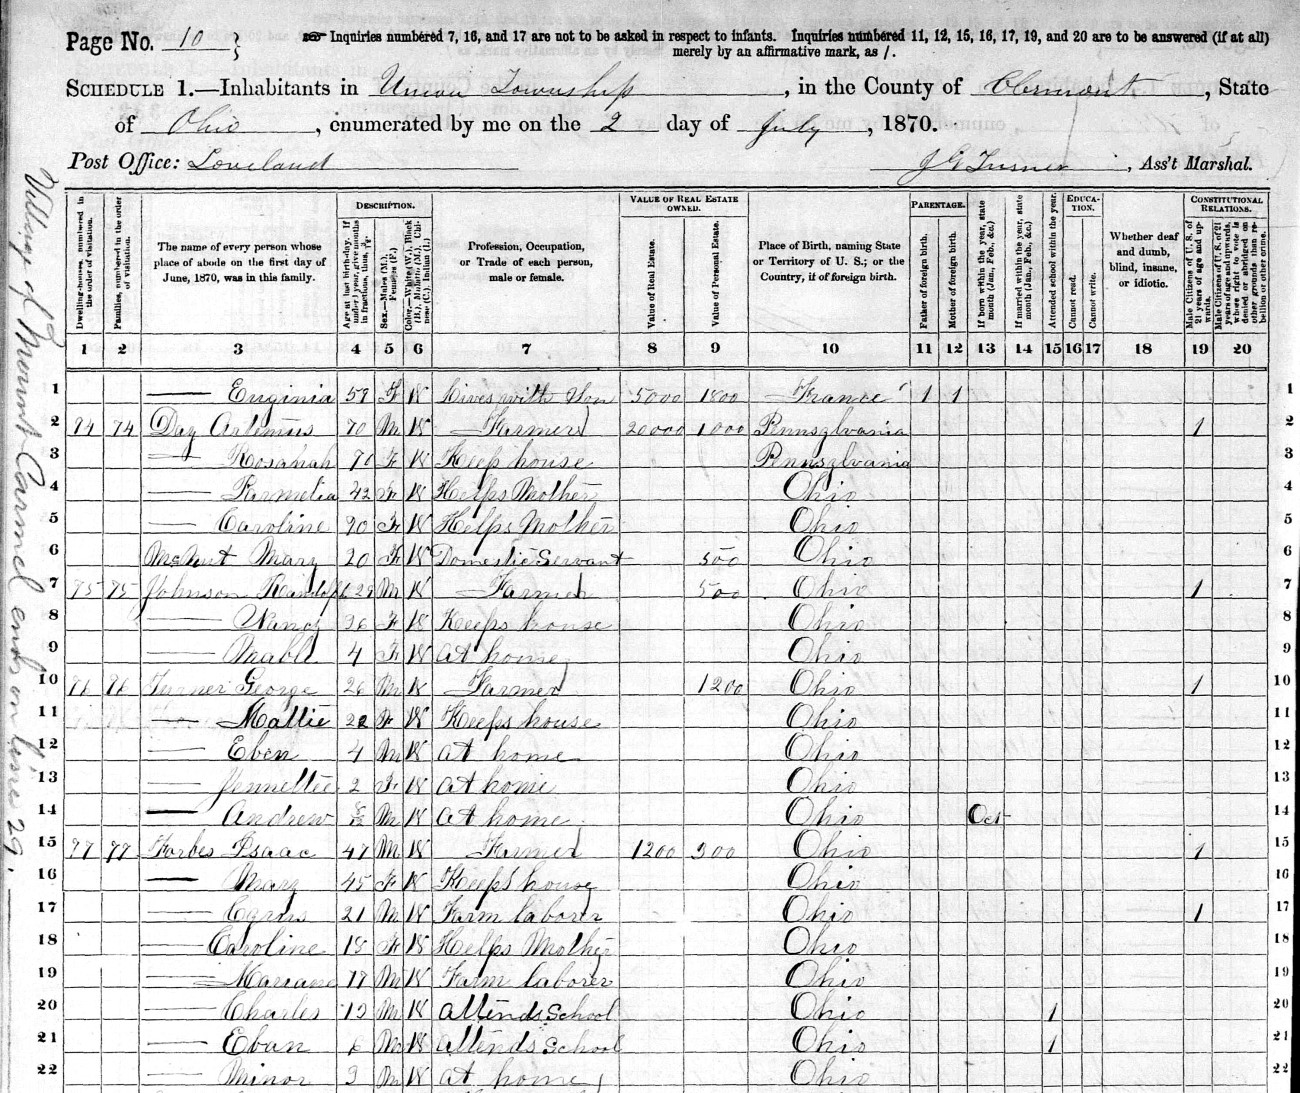 Page No. 10 } Inquiries numbered 7, 16, and 17 are not to be asked in respect to infants. Inquiries numbered 11, 12, 15, 16, 17, 19, and 20 are to be answered (if at all)
merely by an affirmative mark, as /.
SCHEDULE 1.—Inhabitants in Union Township, in the County of Clermont, State
of Ohio, enumerated by me on the 2 day of July, 1870.
Post Office: Loveland J G Turner, Ass't Marshal.
Village of Mount Carmel ends on line 29.
Dwelling-houses, numbered in the order of visitation.
Families, numbered in the order of visitation.
The name of every person whose place of abode on the first day of June, 1870, was in this family.
DESCRIPTION.
Age at last birth-day. If under 1 year, give months in fractions, thus, 3/12.
Sex.—Males (M.), Females (F.)
Color.—White (W.), Black (B.), Mulatto (M.), Chinese (C.), Indian (I.)
Profession, Occupation, or Trade of each person, male or female.
VALUE OF REAL ESTATE OWNED.
Value of Real Estate.
Value of Personal Estate.
Place of Birth, naming State or Territory of U. S.; or the Country, if of foreign birth.
PARENTAGE.
Father of foreign birth.
Mother of foreign birth.
If born within the year, state month (Jan., Feb., &c.)
If married within the year, state month (Jan., Feb., &c.)
Attended school within the year.
EDUCATION.
Cannot read.
Cannot write.
Whether deaf and dumb, blind, insane, or idiotic.
CONSTITUTIONAL RELATIONS.
Male Citizens of U. S. of 21 years of age and upwards.
Male Citizens of U. S. of 21 years of age and upwards, whose right to vote is denied or abridged on other grounds than rebellion or other crime.
1 2 3 4 5 6 7 8 9 10 11 12 13 14 15 16 17 18 19 20
1 — Euginia 59 F W Lives with Son 5000 1800 France 1 1 1
2 74 74 Day Artimus 70 M W Farmer 20000 1000 Pennsylvania 1 2
3 — Rosanah 70 F W Keeps house Pennsylvania 3
4 — Parmelia 42 F W Helps Mother Ohio 4
5 — Caroline F W Helps Mother Ohio 5
6 Mary 20 F W Domestic Servant 500 Ohio 6
7 75 75 Johnson Randolph 29 M W Farmer 500 Ohio 1 7
8 — Nancy 26 F W Keeps house Ohio 8
9 — Mable 4 F W at home Ohio 9
10 76 76 Turner George 26 M W Farmer 1200 Ohio 1 10
11 — Mattie 22 F W Keeps house Ohio 11
12 — Eben 4 M W at home Ohio 12
13 — Jennettee 2 F W at home Ohio 13
14 — Andrew 8/12 M W at home Ohio Oct 14
15 77 77 Forbes Isaac 47 M W Farmer 1200 300 Ohio 1 15
16 — Mary 45 F W Keeps house Ohio 16
17 — Cyrus 21 M W Farm laborer Ohio 1 17
18 — Caroline 18 F W Helps Mother Ohio 18
19 — 17 M W Farm laborer Ohio 19
20 — Charles 12 M W attends School Ohio 1 20
21 — Eban 6 M W attends School Ohio 1 21
22 — Minor 3 M W at home Ohio 22